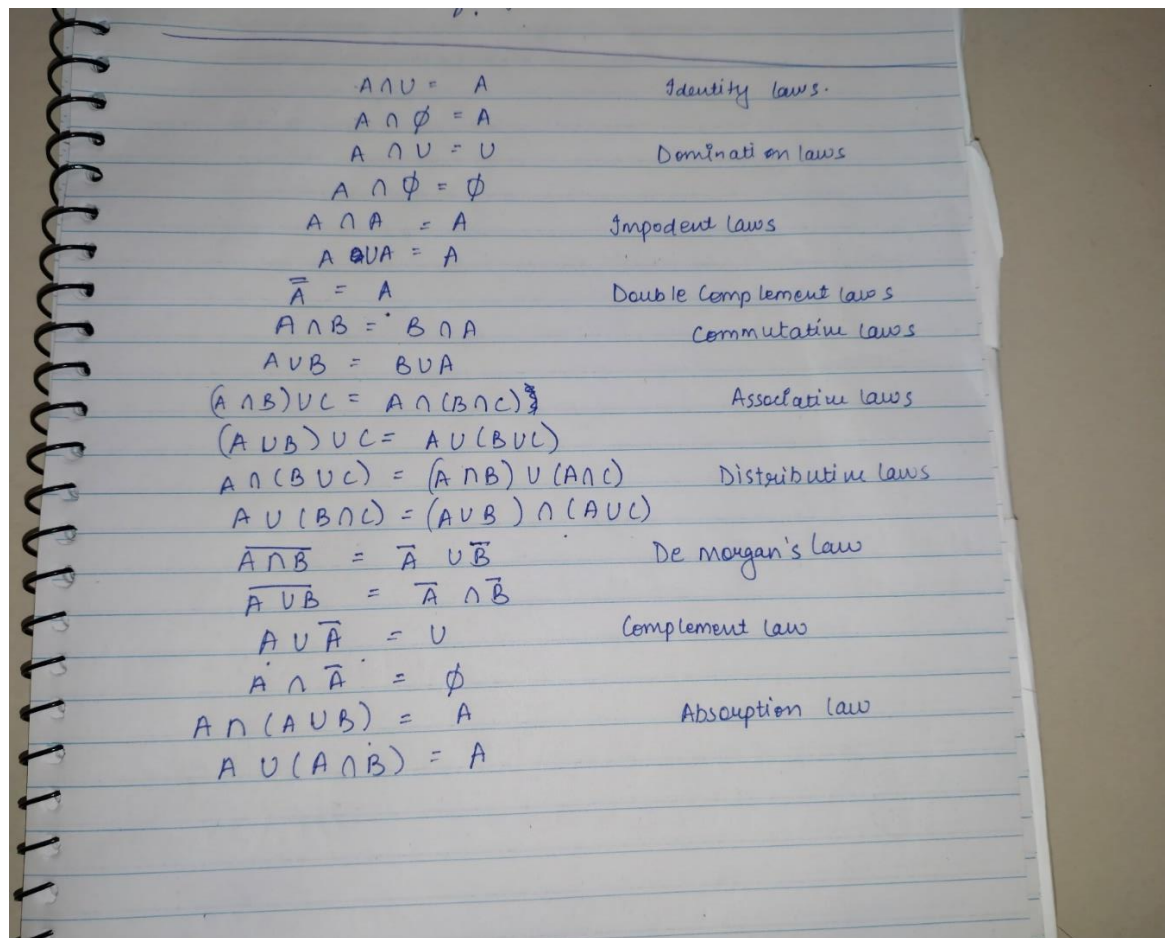 A ∩ U = A Identity laws.
A ∩ ∅ = A
A ∩ U = U Domination laws
A ∩ ∅ = ∅
A ∩ A = A Impodent laws
A ∪ A = A
A̿ = A Double Complement laws
A ∩ B = B ∩ A Commutative laws
A ∪ B = B ∪ A
(A ∩ B) ∪ C = A ∩ (B ∩ C) Associative laws
(A ∪ B) ∪ C = A ∪ (B ∪ C)
A ∩ (B ∪ C) = (A ∩ B) ∪ (A ∩ C) Distributive laws
A ∪ (B ∩ C) = (A ∪ B) ∩ (A ∪ C)
A̅ ̅∩̅ ̅B̅ = A̅ ∪ B̅ De morgan's law
A̅ ̅∪̅ ̅B̅ = A̅ ∩ B̅
A ∪ A̅ = U Complement law
A ∩ A̅ = ∅
A ∩ (A ∪ B) = A Absorption law
A ∪ (A ∩ B) = A